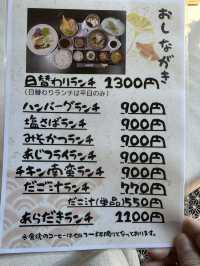 おしながき
日替わりランチ 1300円
(日替わりランチは平日のみ)
ハンバーグランチ 900円
塩さばランチ 900円
みそかつランチ 900円
あじフライランチ 900円
チキン南蛮ランチ 900円
だご汁ランチ 770円
だご汁(単品)550円
あらだきランチ 1200円
※食後のコーヒーはセルフサービスとなっております。